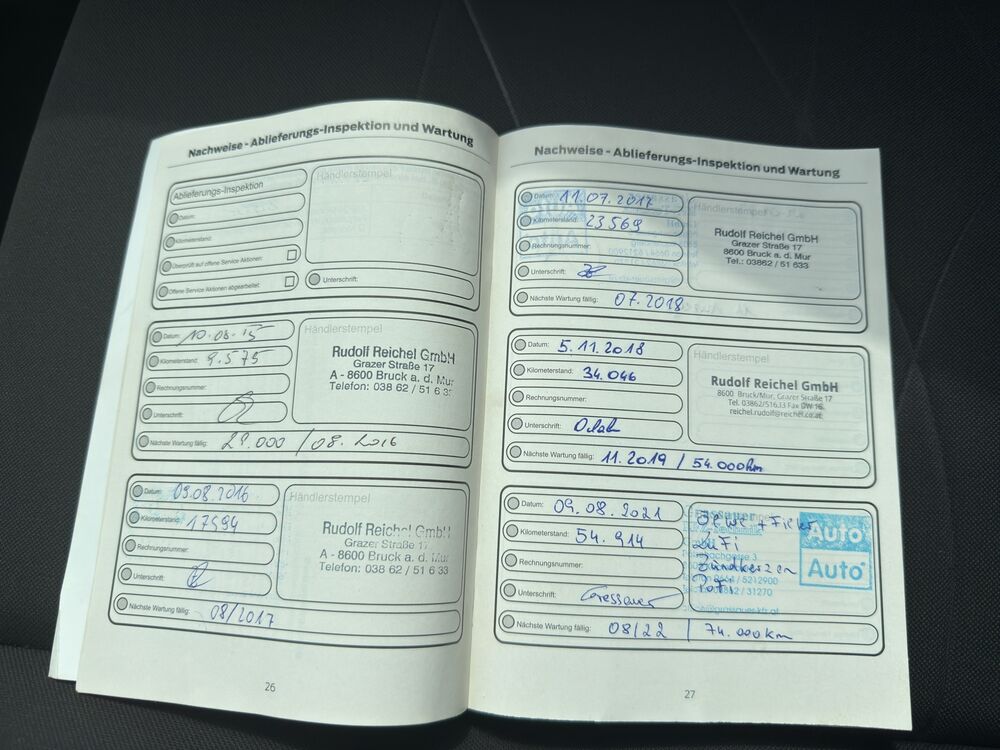 Nachweise - Ablieferungs-Inspektion und Wartung
Ablieferungs-Inspektion
Datum:
Kilometerstand:
Überprüft auf offene Service Aktionen:
Offene Service Aktionen abgearbeitet:
Händlerstempel
Unterschrift:
Datum: 10.08.15
Kilometerstand: 9.575
Rechnungsnummer:
Unterschrift:
Nächste Wartung fällig: 29.000 / 08.2016
Händlerstempel
Rudolf Reichel GmbH
Grazer Straße 17
A - 8600 Bruck a. d. Mur
Telefon: 038 62 / 51 6 33
Datum: 09.08.2016
Kilometerstand: 17594
Rechnungsnummer:
Unterschrift:
Nächste Wartung fällig: 08/2017
Händlerstempel
Rudolf Reichel GmbH
Grazer Straße 17
A - 8600 Bruck a. d. Mur
Telefon: 038 62 / 51 6 33
26
Nachweise - Ablieferungs-Inspektion und Wartung
Datum: 11.07.2017
Kilometerstand: 23569
Rechnungsnummer:
Unterschrift:
Nächste Wartung fällig: 07.2018
Händlerstempel
Rudolf Reichel GmbH
Grazer Straße 17
8600 Bruck a. d. Mur
Tel.: 03862 / 51 633
Datum: 5.11.2018
Kilometerstand: 34.046
Rechnungsnummer:
Unterschrift:
Nächste Wartung fällig: 11.2019 / 54.000km
Händlerstempel
Rudolf Reichel GmbH
8600 Bruck/Mur, Grazer Straße 17
Tel. 03862/51633 Fax DW 16
reichel.rudolf@reichel.co.at
Datum: 09.08.2021
Kilometerstand: 54.914
Rechnungsnummer:
Unterschrift: Grassauer
Nächste Wartung fällig: 08/22 / 74.000km
Grassauer
Ölwe + Filter
LuFi
Zündkerzen
PoFi
0664 / 5212900
/ 31270
Auto
Auto
27